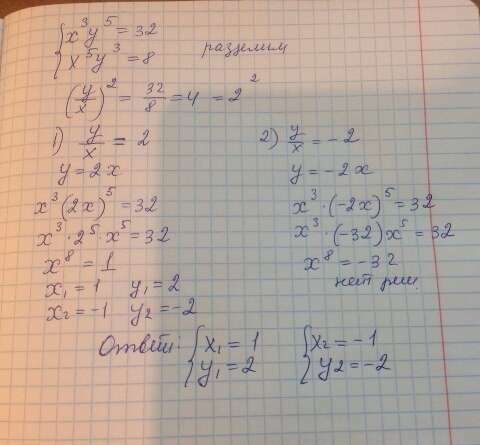 {x³y⁵ = 32
{x⁵y³ = 8
разделим
(y/x)² = 32/8 = 4 = 2²
1) y/x = 2
y = 2x
x³(2x)⁵ = 32
x³ · 2⁵ · x⁵ = 32
x⁸ = 1
x₁ = 1 y₁ = 2
x₂ = -1 y₂ = -2
2) y/x = -2
y = -2x
x³ · (-2x)⁵ = 32
x³ · (-32) x⁵ = 32
x⁸ = -32
нет реш.
Ответ: {x₁ = 1 {x₂ = -1
{y₁ = 2 {y2 = -2